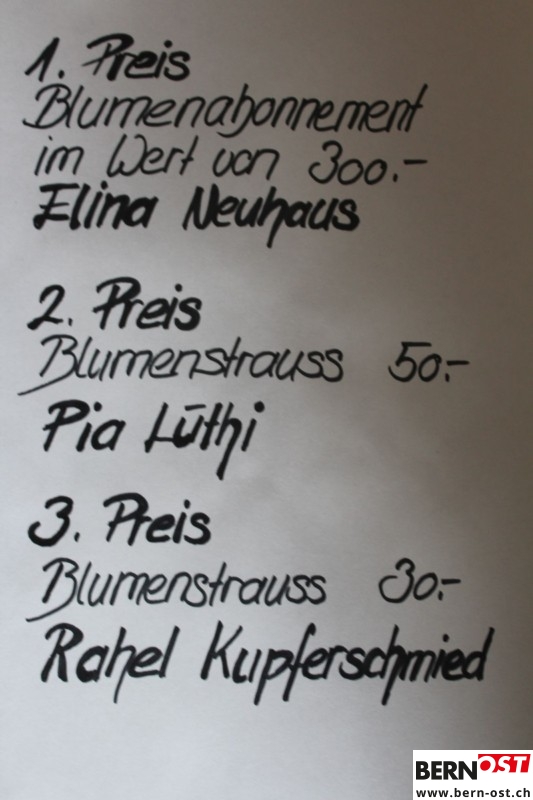 1. Preis
Blumenabonnement
im Wert von 300.-
Elina Neuhaus
2. Preis
Blumenstrauss 50.-
Pia Lüthi
3. Preis
Blumenstrauss 30.-
Rahel Kupferschmied
BERNOST
www.bern-ost.ch